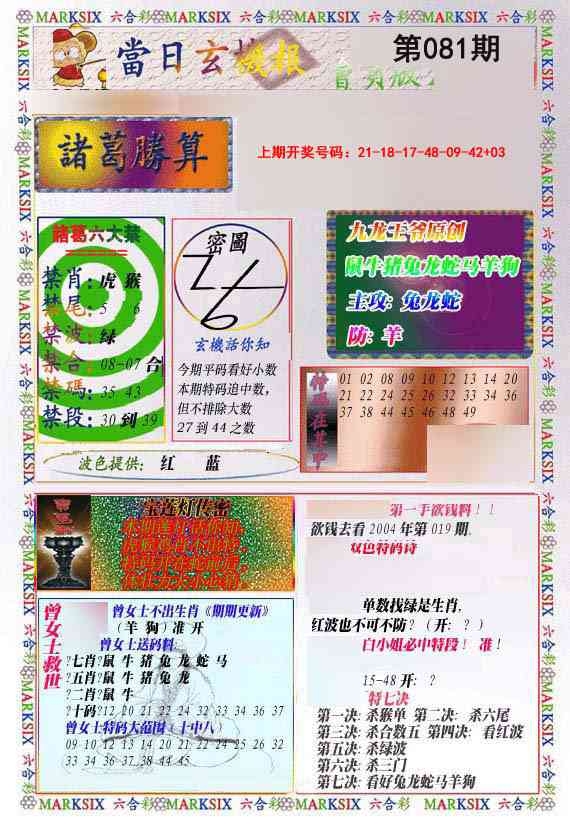 MARKSIX 六合彩
當日玄機报
第081期
諸葛勝算
上期开奖号码：21-18-17-48-09-42+03
諸葛六大禁
禁肖：虎 猴
禁尾：5 6
禁波：绿
禁合：08-07 合
禁碼：35 43
禁段：30 到 39
密圖
玄機話你知
今期平码看好小数
本期特码追中数，
但不排除大数
27 到 44 之数
九龙王爷原创
鼠牛猪兔龙蛇马羊狗
主攻: 兔龙蛇
防: 羊
特码在其中
01 02 08 09 10 12 13 14 20
21 22 24 25 26 32 33 34 36
37 38 44 45 46 48 49
波色提供： 红 蓝
宝莲灯传密
第一手欲钱料！！
欲钱去看 2004 年第 019 期.
双色特码诗
单数找绿是生肖,
红波也不可不防？（开: ？）
白小姐必中特段！ 准！
15-48 开: ?
特七决
第一决: 杀猴单 第二决: 杀六尾
第三决: 杀合数五 第四决: 看红波
第五决: 杀绿波
第六决: 杀三门
第七决: 看好兔龙蛇马羊狗
曾女士救世
曾女士不出生肖《期期更新》
（羊 狗）准 开
曾女士送码料
?七肖?鼠 牛 猪 兔 龙 蛇 马
?五肖?鼠 牛 猪 兔 龙
?二肖?鼠 牛
?十码?12 20 21 22 24 32 33 34 36 37
曾女士特码大范围（十中八）
09 10 12 13 14 20 21 22 24 25 26 32
33 34 36 37 38 44 45